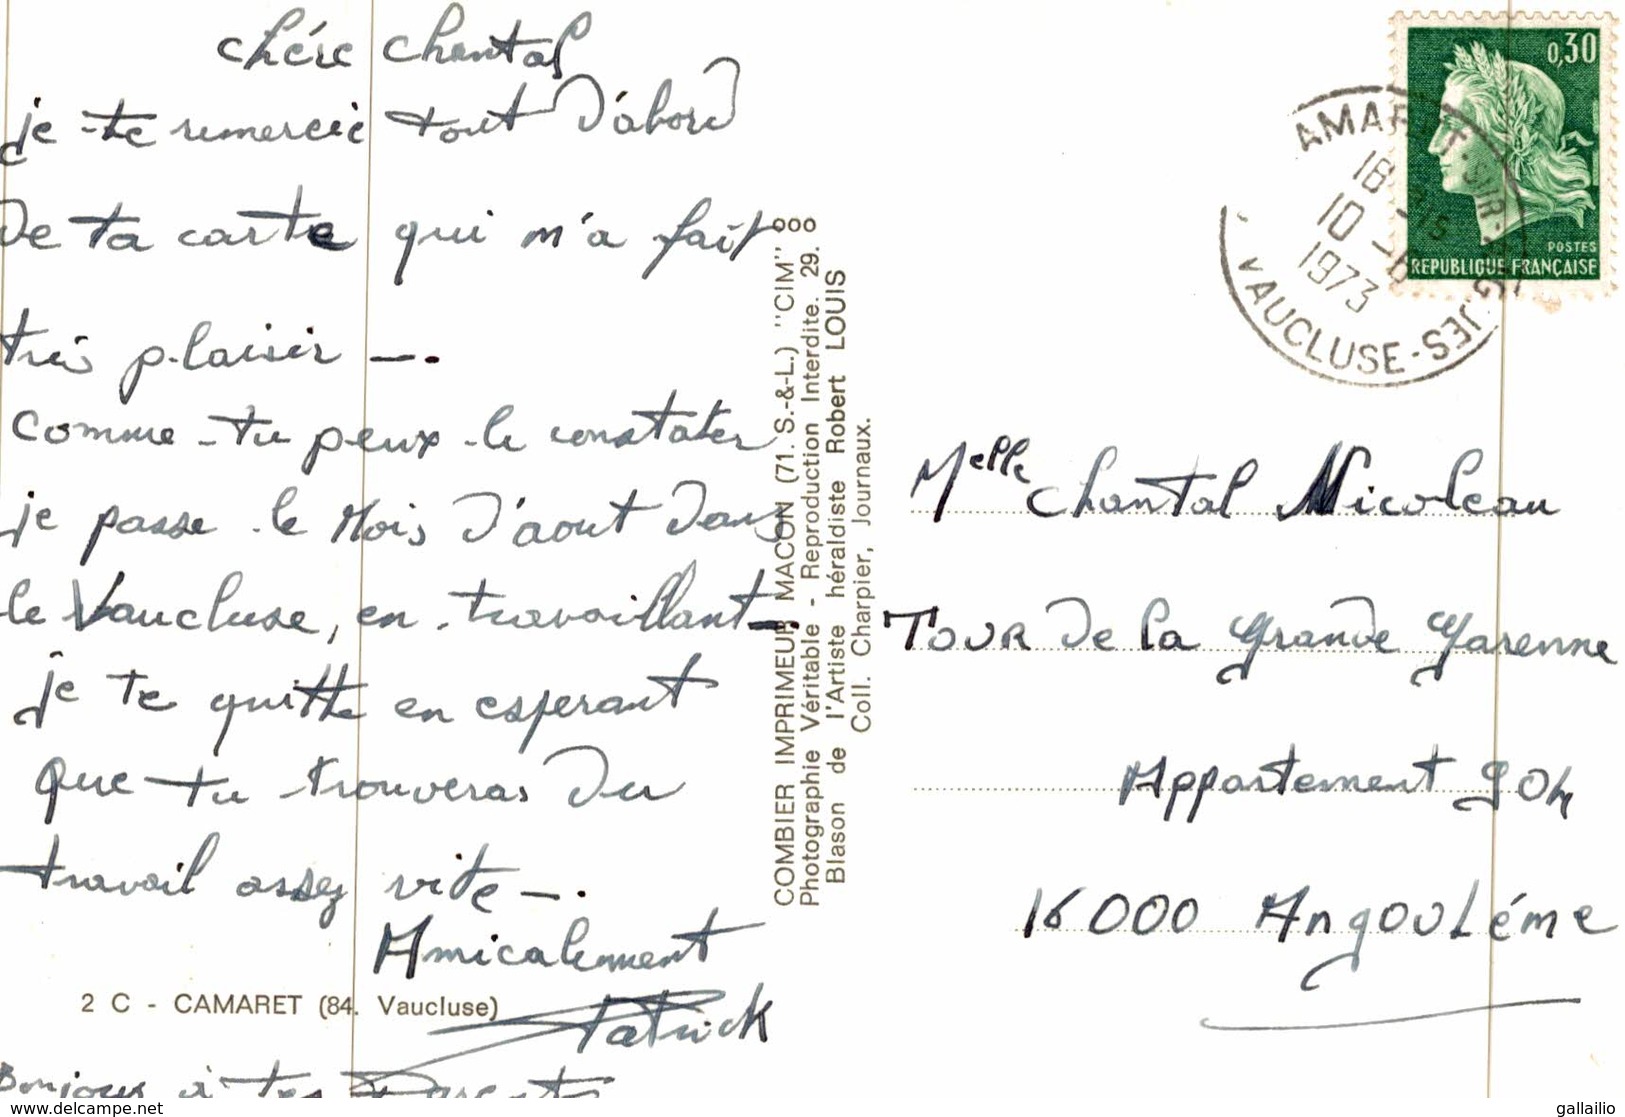 chére Chantal
je te remercie tout d'abord
De ta carte qui m'a fait
très plaisir —.
comme tu peux le constater
je passe le Mois d'aout dans
le Vaucluse, en travaillant —.
je te quitte en esperant
que tu trouveras du
travail assez vite —.
Amicalement
Patrick
2 C - CAMARET (84. Vaucluse)
Bonjour à tes Parents
COMBIER IMPRIMEUR MACON (71. S.-&-L.) "CIM" ooo
Photographie Véritable - Reproduction Interdite. 29.
Blason de l'Artiste héraldiste Robert LOUIS
Coll. Charpier, Journaux.
0,30
POSTES
REPUBLIQUE FRANÇAISE
18
10 -
1973
VAUCLUSE
Melle Chantal Nicoleau
TOUR De la Grande Garenne
Appartement 904
16000 Angouléme
www.delcampe.net
gallailio